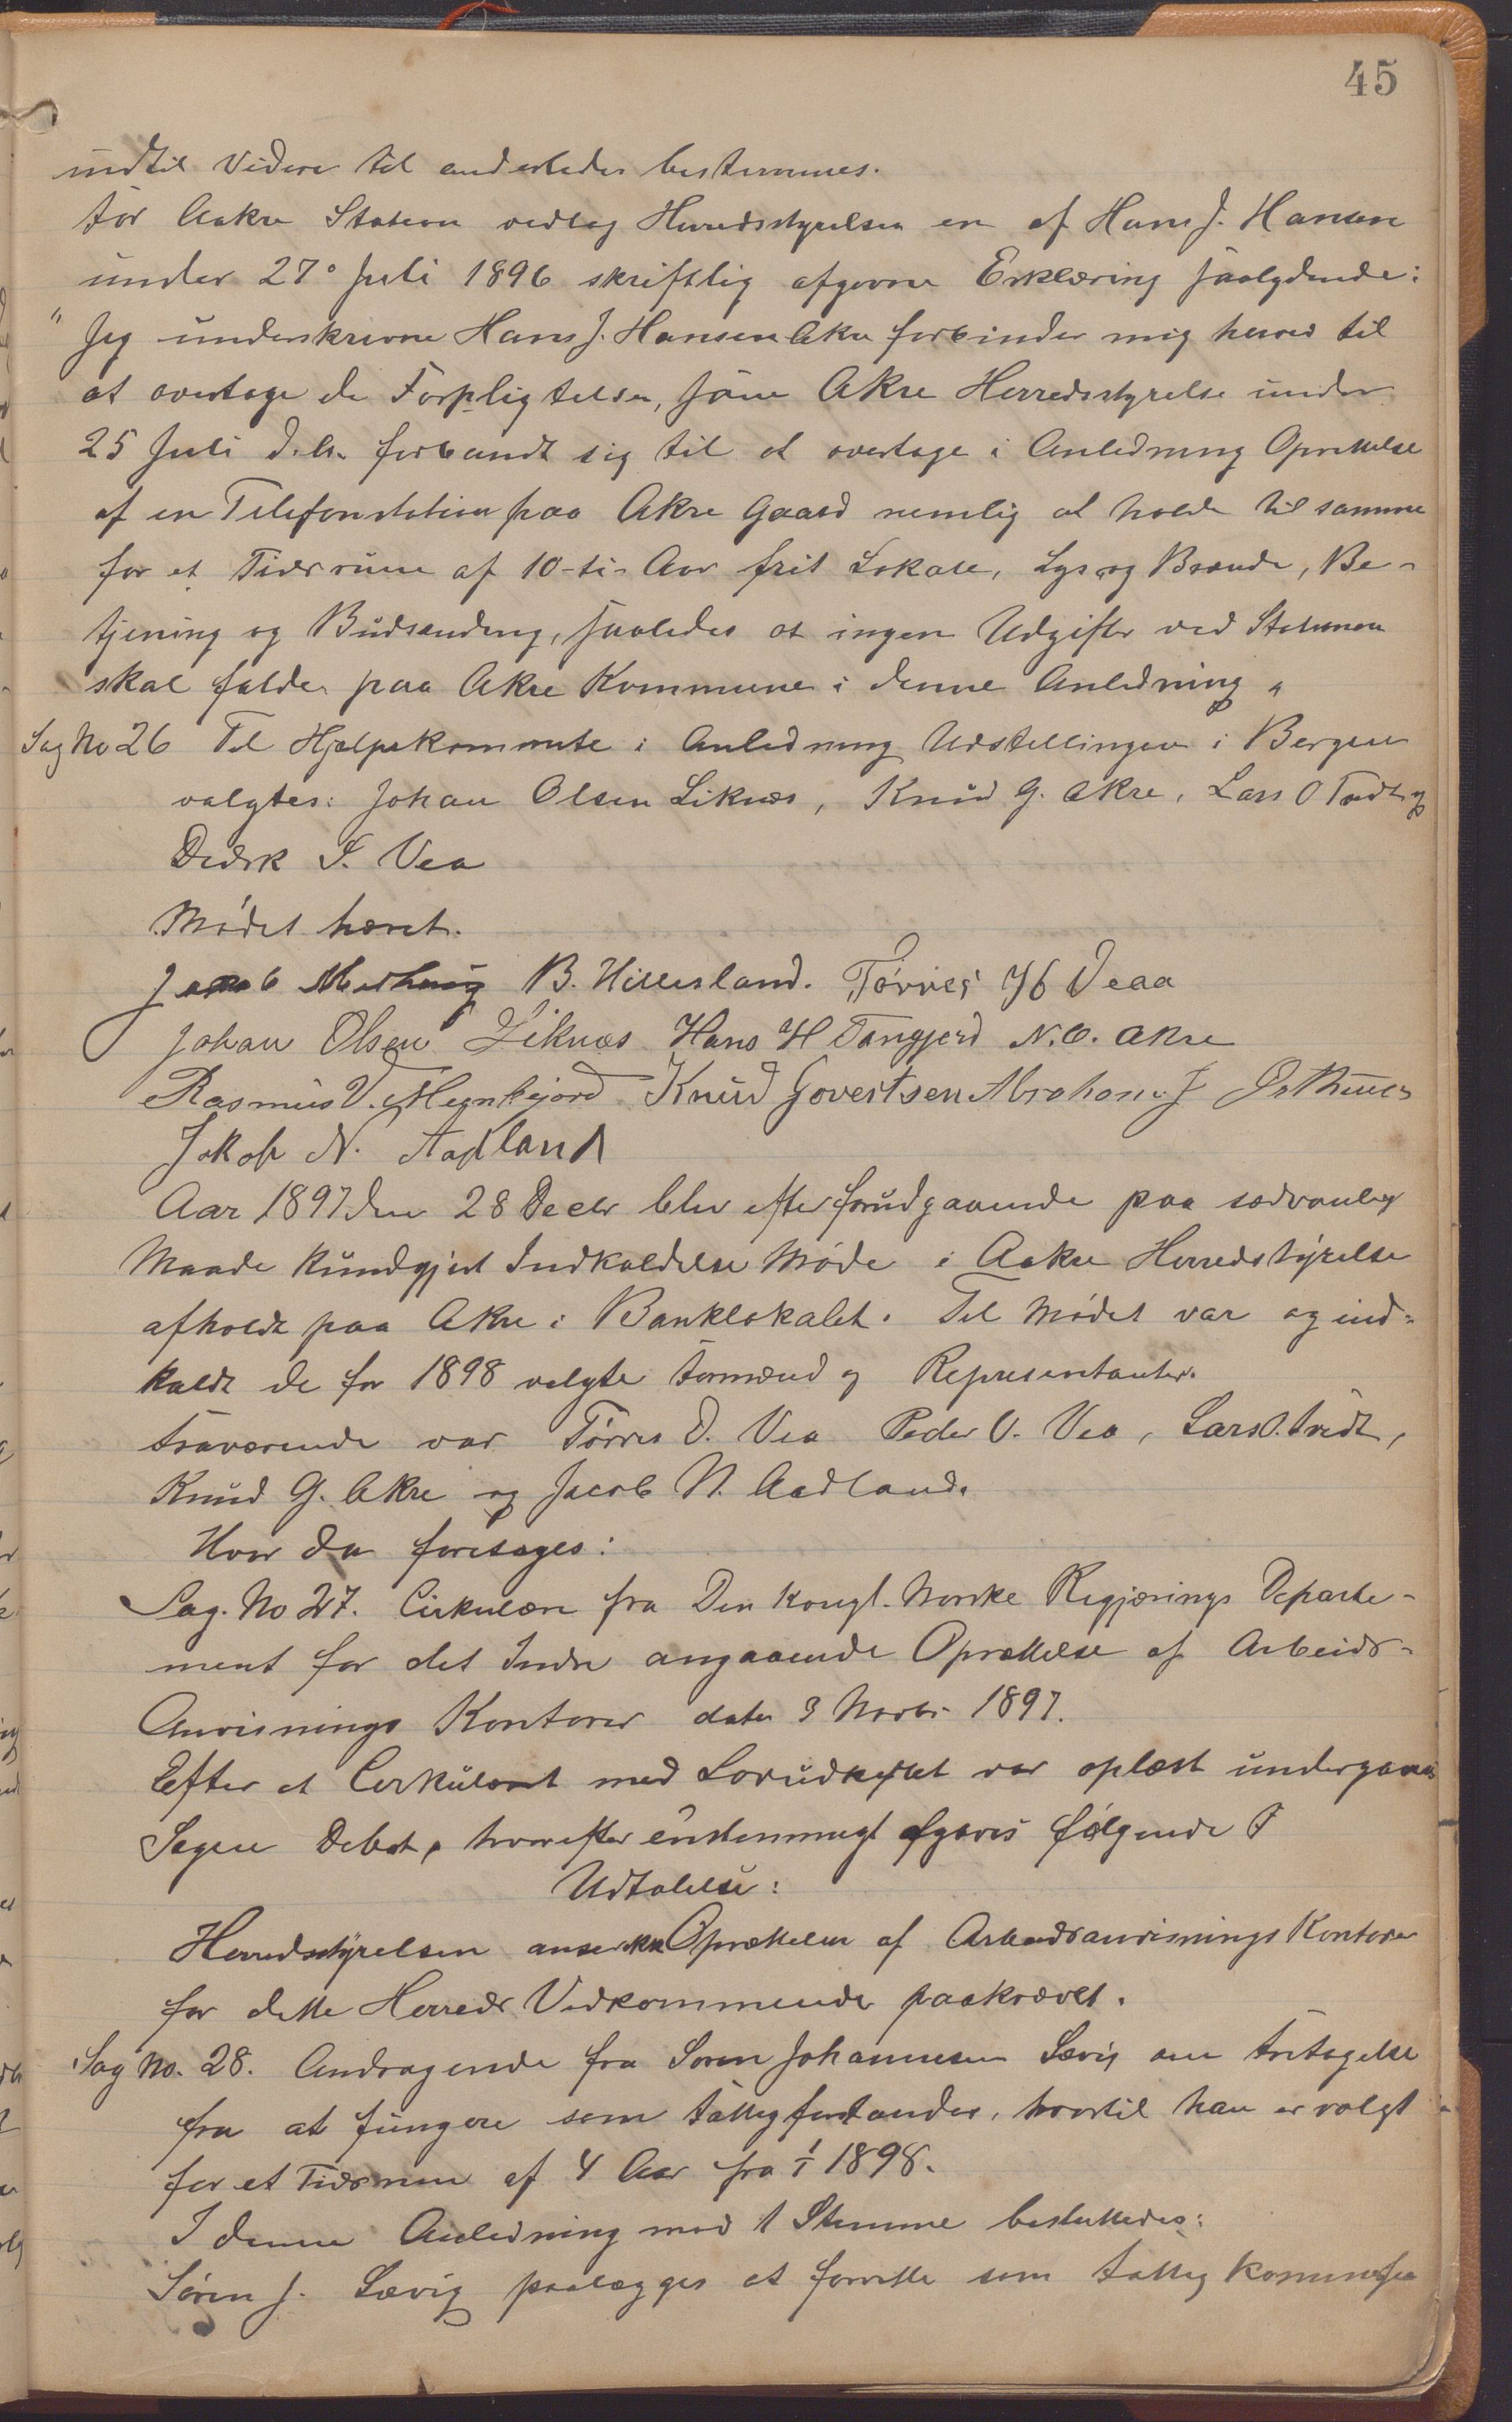 45
indtil Videre til anderledes bestemmes.
for Aakre Station vedtog Herredsstyrelsen en af Hans J. Hansen
under 27° Juli 1896 skriftlig afgivne Erklæring saalydende:
"Jeg underskrevne Hans J. Hansen Akre forbinder mig herved til
at overtage de Forpligtelser, som Akre Herredsstyrelse under
25 Juli d.A. forbandt sig til at overtage i Anledning Oprettelse
af en Telefonstation paa Akre Gaard nemlig at holde til samme
for et Tidsrum af 10-ti- Aar frit Lokale, Lys og Brænde, Be-
tjening og Budsending, saaledes at ingen Udgifter ved Stationen
skal falde paa Akre Kommune i denne Anledning "
Sag No 26 Til Hjælpekommite i Anledning Udstillingen i Bergen
valgtes: Johan Olsen Liknæs, Knud G. Akre, Lars O Tvedt og
Didrk T. Vea
Mødet hævet.
Jacob B. Hillesland. Tørris Veaa
Johan Olsen Liknæs Hans H Tangjerd N.O. Akre
Rasmus V. Knud Govertsen Abraham J
Jakob N. Aadland
Aar 1897 den 28 Decbr blev efter forudgaaende paa sædvanlig
Maade kundgjort Indkaldelse Møde i Aakre Herredstyrelse
afholdt paa Akre i Banklokalet. Til Mødet var og ind-
kaldt de for 1898 valgte Formænd og Representanter.
Fraværende var Tørres D. Vea Peder O. Vea, Lars O. Tvedt,
Knud G. Akre og Jacob N. Aadland.
Hvor da foretoges:
Sag. No 27. Cirkulære fra Den kongl. Norske Regjærings Departe-
ment for det Indre angaaende Oprættelse af Arbeids-
Anvisnings Kontorer dater 3 Novbr 1897.
Efter at Cirkulæret med Lovudkastet var oplæst undergaves
Sagen Debat, hvorefter enstemmigt afgaves følgende
Udtalelse:
Herredsstyrelsen anser ikke Oprættelse af Arbeidsanvisnings Kontorer
for dette Herreds Vedkommende paakrævet.
Sag No. 28. Andragende fra Søren Johannesen Sævig om Fritagelse
fra at fungere som Fattigforstander, hvortil han er valgt
for et Tidsrum af 4 Aar fra 1/1 1898.
I denne Anledning mod 1 Stemme besluttedes:
Søren J. Sævig paalægges at forrette som Fattig